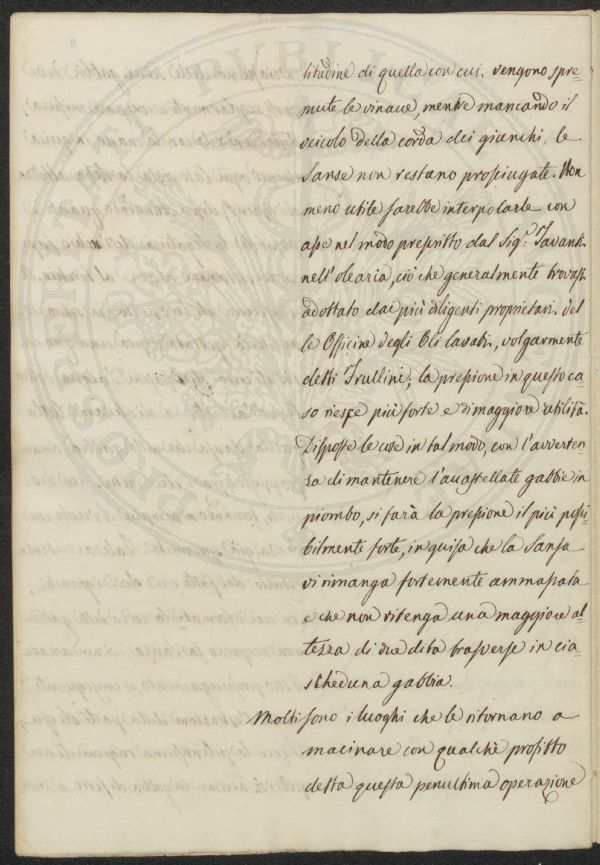 titudine di quella con cui vengono spre-
mute le vinacce, mentre mancando il
veicolo della corda dei giunchi, le
Sanse non restano prosciugate. Non
meno utile sarebbe interpolarle con
asse nel modo prescritto dal Sigr. Tavanti
nell'olearia, ciò che generalmente trovasi
adottato dai più diligenti proprietari del
le Officine degli Oli lavati, volgarmente
detti Frullini; la pressione in questo ca-
so riesce più forte e di maggiore utilità.
Disposte le cose in tal modo, con l'avverten-
za di mantenere l'accastellate gabbie in
piombo, si farà la pressione il più possi-
bilmente forte, in guisa che la Sansa
vi rimanga fortemente ammassata
e che non ritenga una maggiore al-
tezza di due dita trasverse in cia-
scheduna gabbia.
Molti sono i luoghi che le ritornano a
macinare con qualche profitto
detta questa penultima operazione